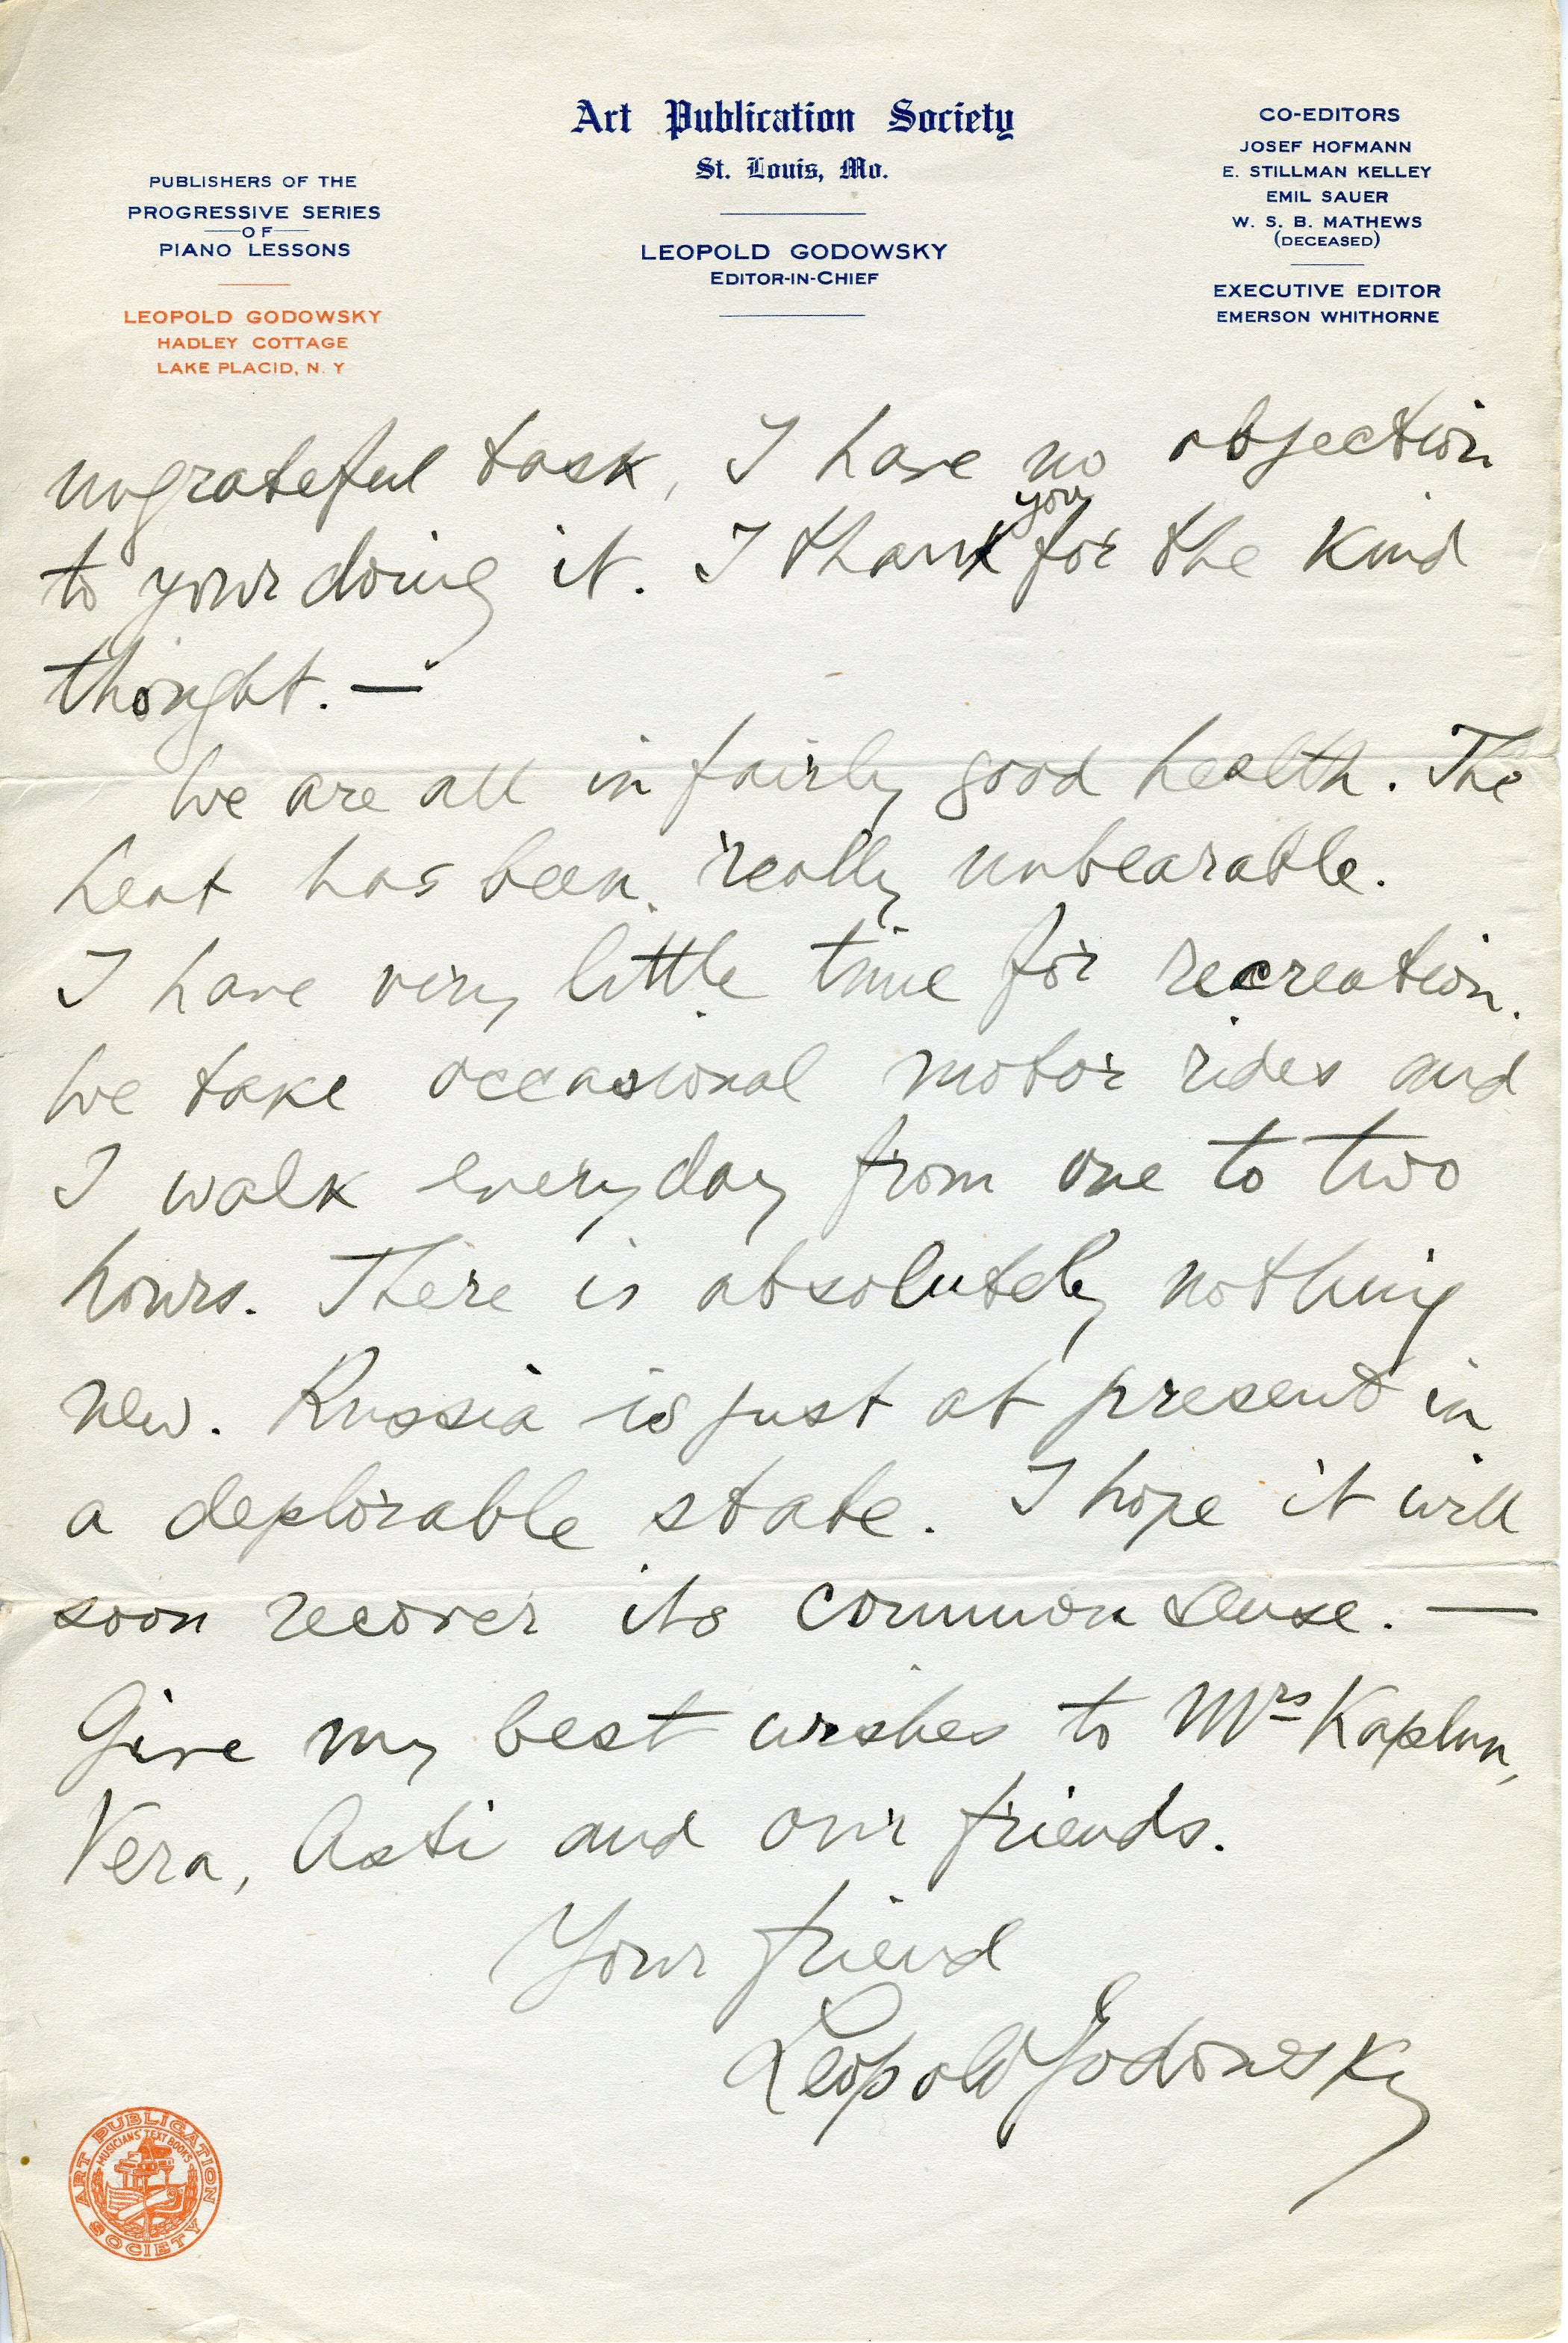 Art Publication Society
St. Louis, Mo.
LEOPOLD GODOWSKY
EDITOR-IN-CHIEF
PUBLISHERS OF THE
PROGRESSIVE SERIES
OF
PIANO LESSONS
LEOPOLD GODOWSKY
HADLEY COTTAGE
LAKE PLACID, N. Y
CO-EDITORS
JOSEF HOFMANN
E. STILLMAN KELLEY
EMIL SAUER
W. S. B. MATHEWS
(DECEASED)
EXECUTIVE EDITOR
EMERSON WHITHORNE
ungrateful task, I have no objection
to your doing it. I thank you for the kind
thought. —
We are all in fairly good health. The
heat has been really unbearable.
I have very little time for recreation.
We take occasional motor rides and
I walk every day from one to two
hours. There is absolutely nothing
new. Russia is just at present in
a deplorable state. I hope it will
soon recover its common sense. —
Give my best wishes to Mrs Kaplun,
Vera, Asti and our friends.
Your friend
Leopold Godowsky
ART PUBLICATION SOCIETY
MUSICIANS' TEXT BOOKS